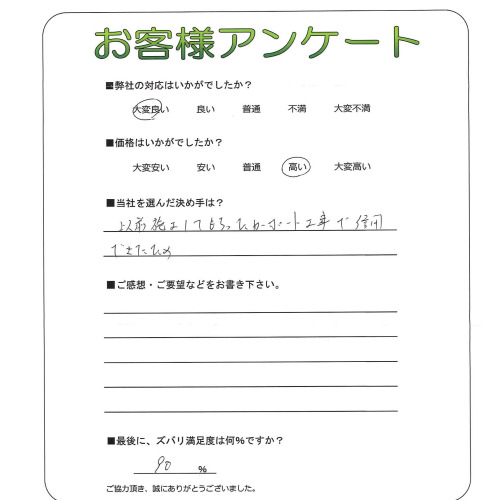 お客様アンケート
■弊社の対応はいかがでしたか？
大変良い 良い 普通 不満 大変不満
■価格はいかがでしたか？
大変安い 安い 普通 高い 大変高い
■当社を選んだ決め手は？
以前施工してもらったカーポート工事で信用
できたため
■ご感想・ご要望などをお書き下さい。
■最後に、ズバリ満足度は何%ですか？
90 %
ご協力頂き、誠にありがとうございました。